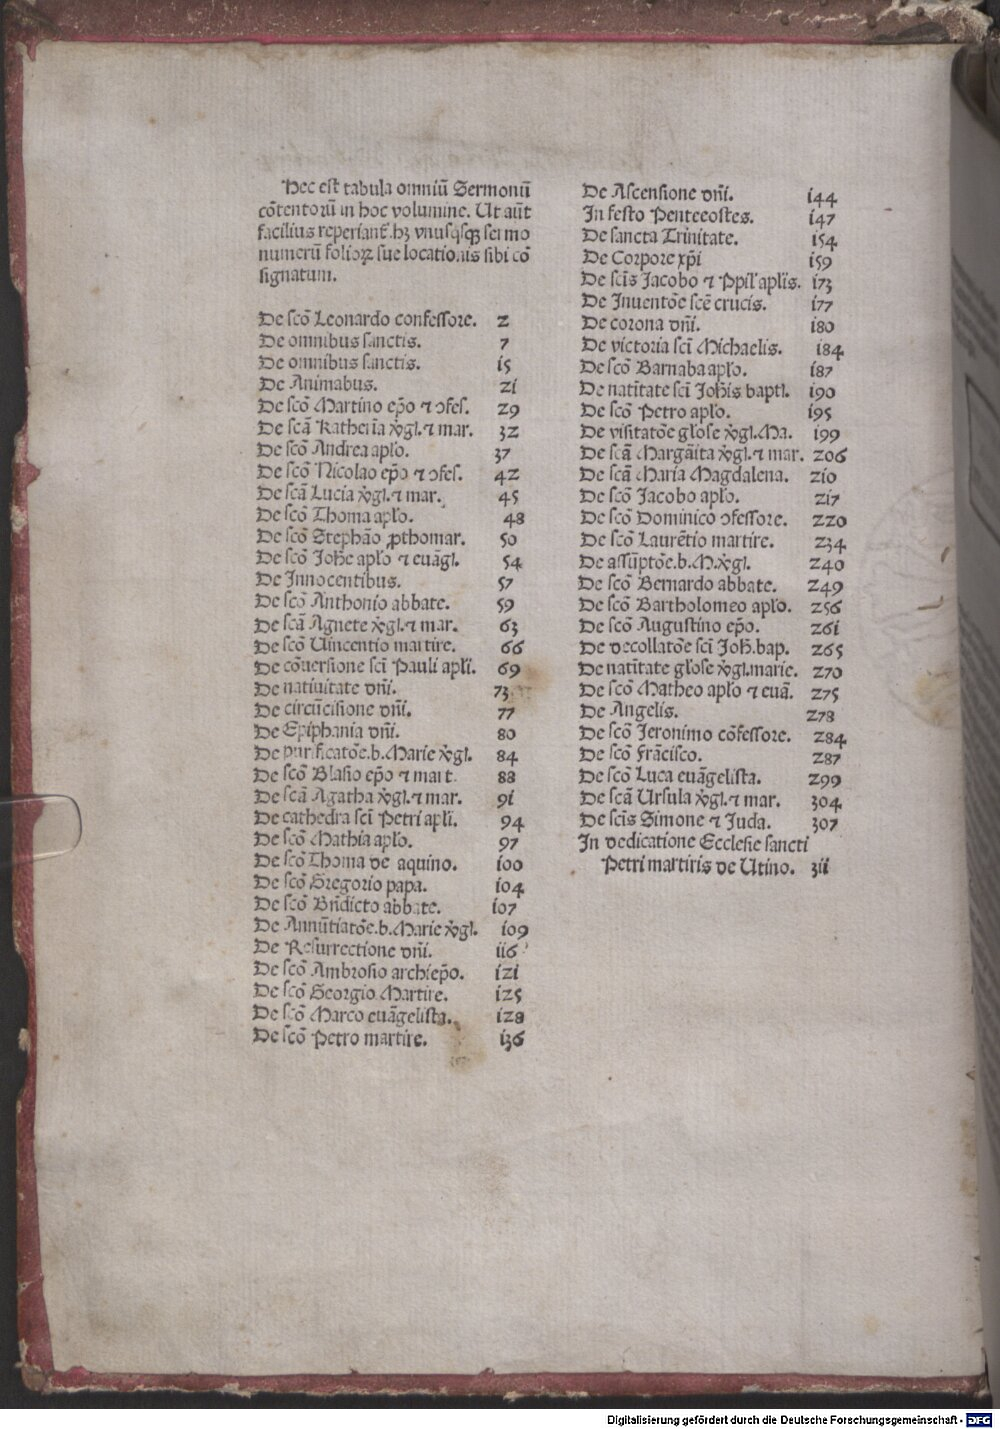 Hec est tabula omniū Sermonū
cōtentorū in hoc volumine. Ut aūt
facilius reperiant᷑.hꝫ vnusqsqꝫ sermo
numerū folioꝝ sue locationis sibi cō
signatum.
De scō Leonardo confessore. 2
De omnibus sanctis. 7
De omnibus sanctis. i5
De Animabus. 2i
De scō Martino ep̄o ⁊ ↄfes. 29
De scā Katherīa v̄gl.⁊ mar. 32
De scō Andrea apl̄o. 37
De scō Nicolao ep̄o ⁊ ↄfes. 42
De scā Lucia v̄gl.⁊ mar. 45
De scō Thoma apl̄o. 48
De scō Stephāo ꝓthomar. 50
De scō Joh̄e apl̄o ⁊ euāgl. 54
De Innocentibus. 57
De scō Anthonio abbate. 59
De scā Agnete v̄gl.⁊ mar. 63
De scō Uincentio martire. 66
De cōuersione scī Pauli apl̄i. 69
De natiuitate dn̄i. 73
De circūcisione dn̄i. 77
De Epiphania dn̄i. 80
De purificatōe.b.Marie v̄gl. 84
De scō Blasio ep̄o ⁊ mart. 88
De scā Agatha v̄gl.⁊ mar. 9i
De cathedra scī Petri apl̄i. 94
De scō Mathia apl̄o. 97
De scō Thoma de aquino. i00
De scō Gregorio papa. i04
De scō Bn̄dicto abbate. i07
De Annūtiatōe.b.Marie v̄gl. i09
De Resurrectione dn̄i. ii6
De scō Ambrosio archiep̄o. i2i
De scō Georgio Martire. i25
De scō Marco euāgelista. i28
De scō Petro martire. i36
De Ascensione dn̄i. i44
In festo Pentecostes. i47
De sancta Trinitate. i54
De Corpore xp̄i i59
De scīs Jacobo ⁊ Ppil̄ apl̄is. i73
De Inuentōe scē crucis. i77
De corona dn̄i. i80
De victoria scī Michaelis. i84
De scō Barnaba apl̄o. i87
De natītate scī Joh̄is baptl. i90
De scō Petro apl̄o. i95
De visitatōe gl̄ose v̄gl.Ma. i99
De scā Margāita v̄gl.⁊ mar. 206
De scā Maria Magdalena. 2i0
De scō Jacobo apl̄o. 2i7
De scō Dominico ↄfessore. 220
De scō Laurētio martire. 234
De assūptōe.b.M.v̄gl. 240
De scō Bernardo abbate. 249
De scō Bartholomeo apl̄o. 256
De scō Augustino ep̄o. 26i
De decollatōe scī Joh̄.bap. 265
De natītate gl̄ose v̄gl.marie. 270
De scō Matheo apl̄o ⁊ euā. 275
De Angelis. 278
De scō Jeronimo cōfessore. 284
De scō Frācisco. 287
De scō Luca euāgelista. 299
De scā Ursula v̄gl.⁊ mar. 304
De scīs Simone ⁊ Juda. 307
In dedicatione Ecclesie sancti
Petri martiris de Utino. 3ii
Digitalisierung gefördert durch die Deutsche Forschungsgemeinschaft - DFG